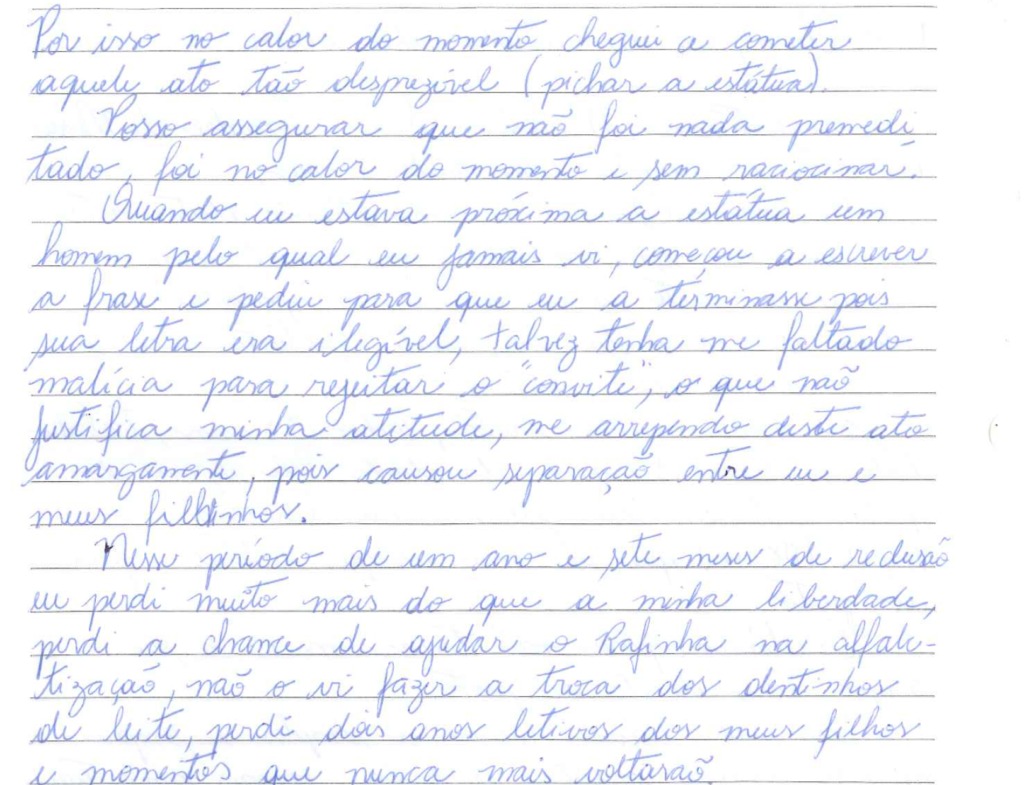 Por isso no calor do momento cheguei a cometer
aquele ato tão desprezível (pichar a estátua).
Posso assegurar que não foi nada premedi
tado, foi no calor do momento e sem raciocinar.
Quando eu estava próxima a estátua um
homem pelo qual eu jamais vi, começou a escrever
a frase e pediu para que eu a términasse pois
sua letra era ilegível, talvez tenha me faltado
malícia para rejeitar o "convite", o que não
justifica minha atitude, me arrependo deste ato
amargamente, pois causou separação entre eu e
meus filhinhos.
Nesse período de um ano e sete meses de reclusão
eu perdi muito mais do que a minha liberdade,
perdi a chance de ajudar o Rafinha na alfabe-
tização, não o vi fazer a troca dos dentinhos
de leite, perdi dois anos letivos dos meus filhos
e momentos que nunca mais voltarão.